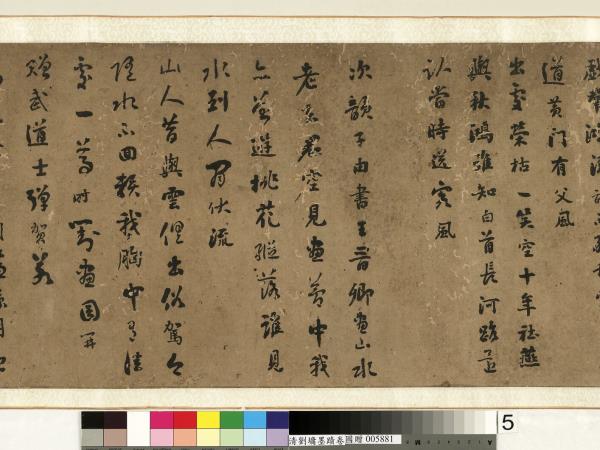 道黃門有父風
出處榮枯一笑空十年社燕
與秋鴻誰知白首長河路還
認當時送客風
次韻子由書王晉卿畫山水
老去君空見畫夢中我
亦曾遊桃花縱落誰見
水到人間伏流
山人昔與雲俱出俗駕今
隨水不回賴我胸中有佳
處一尊時對畫圖開
贈武道士彈賀若
5
清劉墉墨蹟卷 國贈 005881